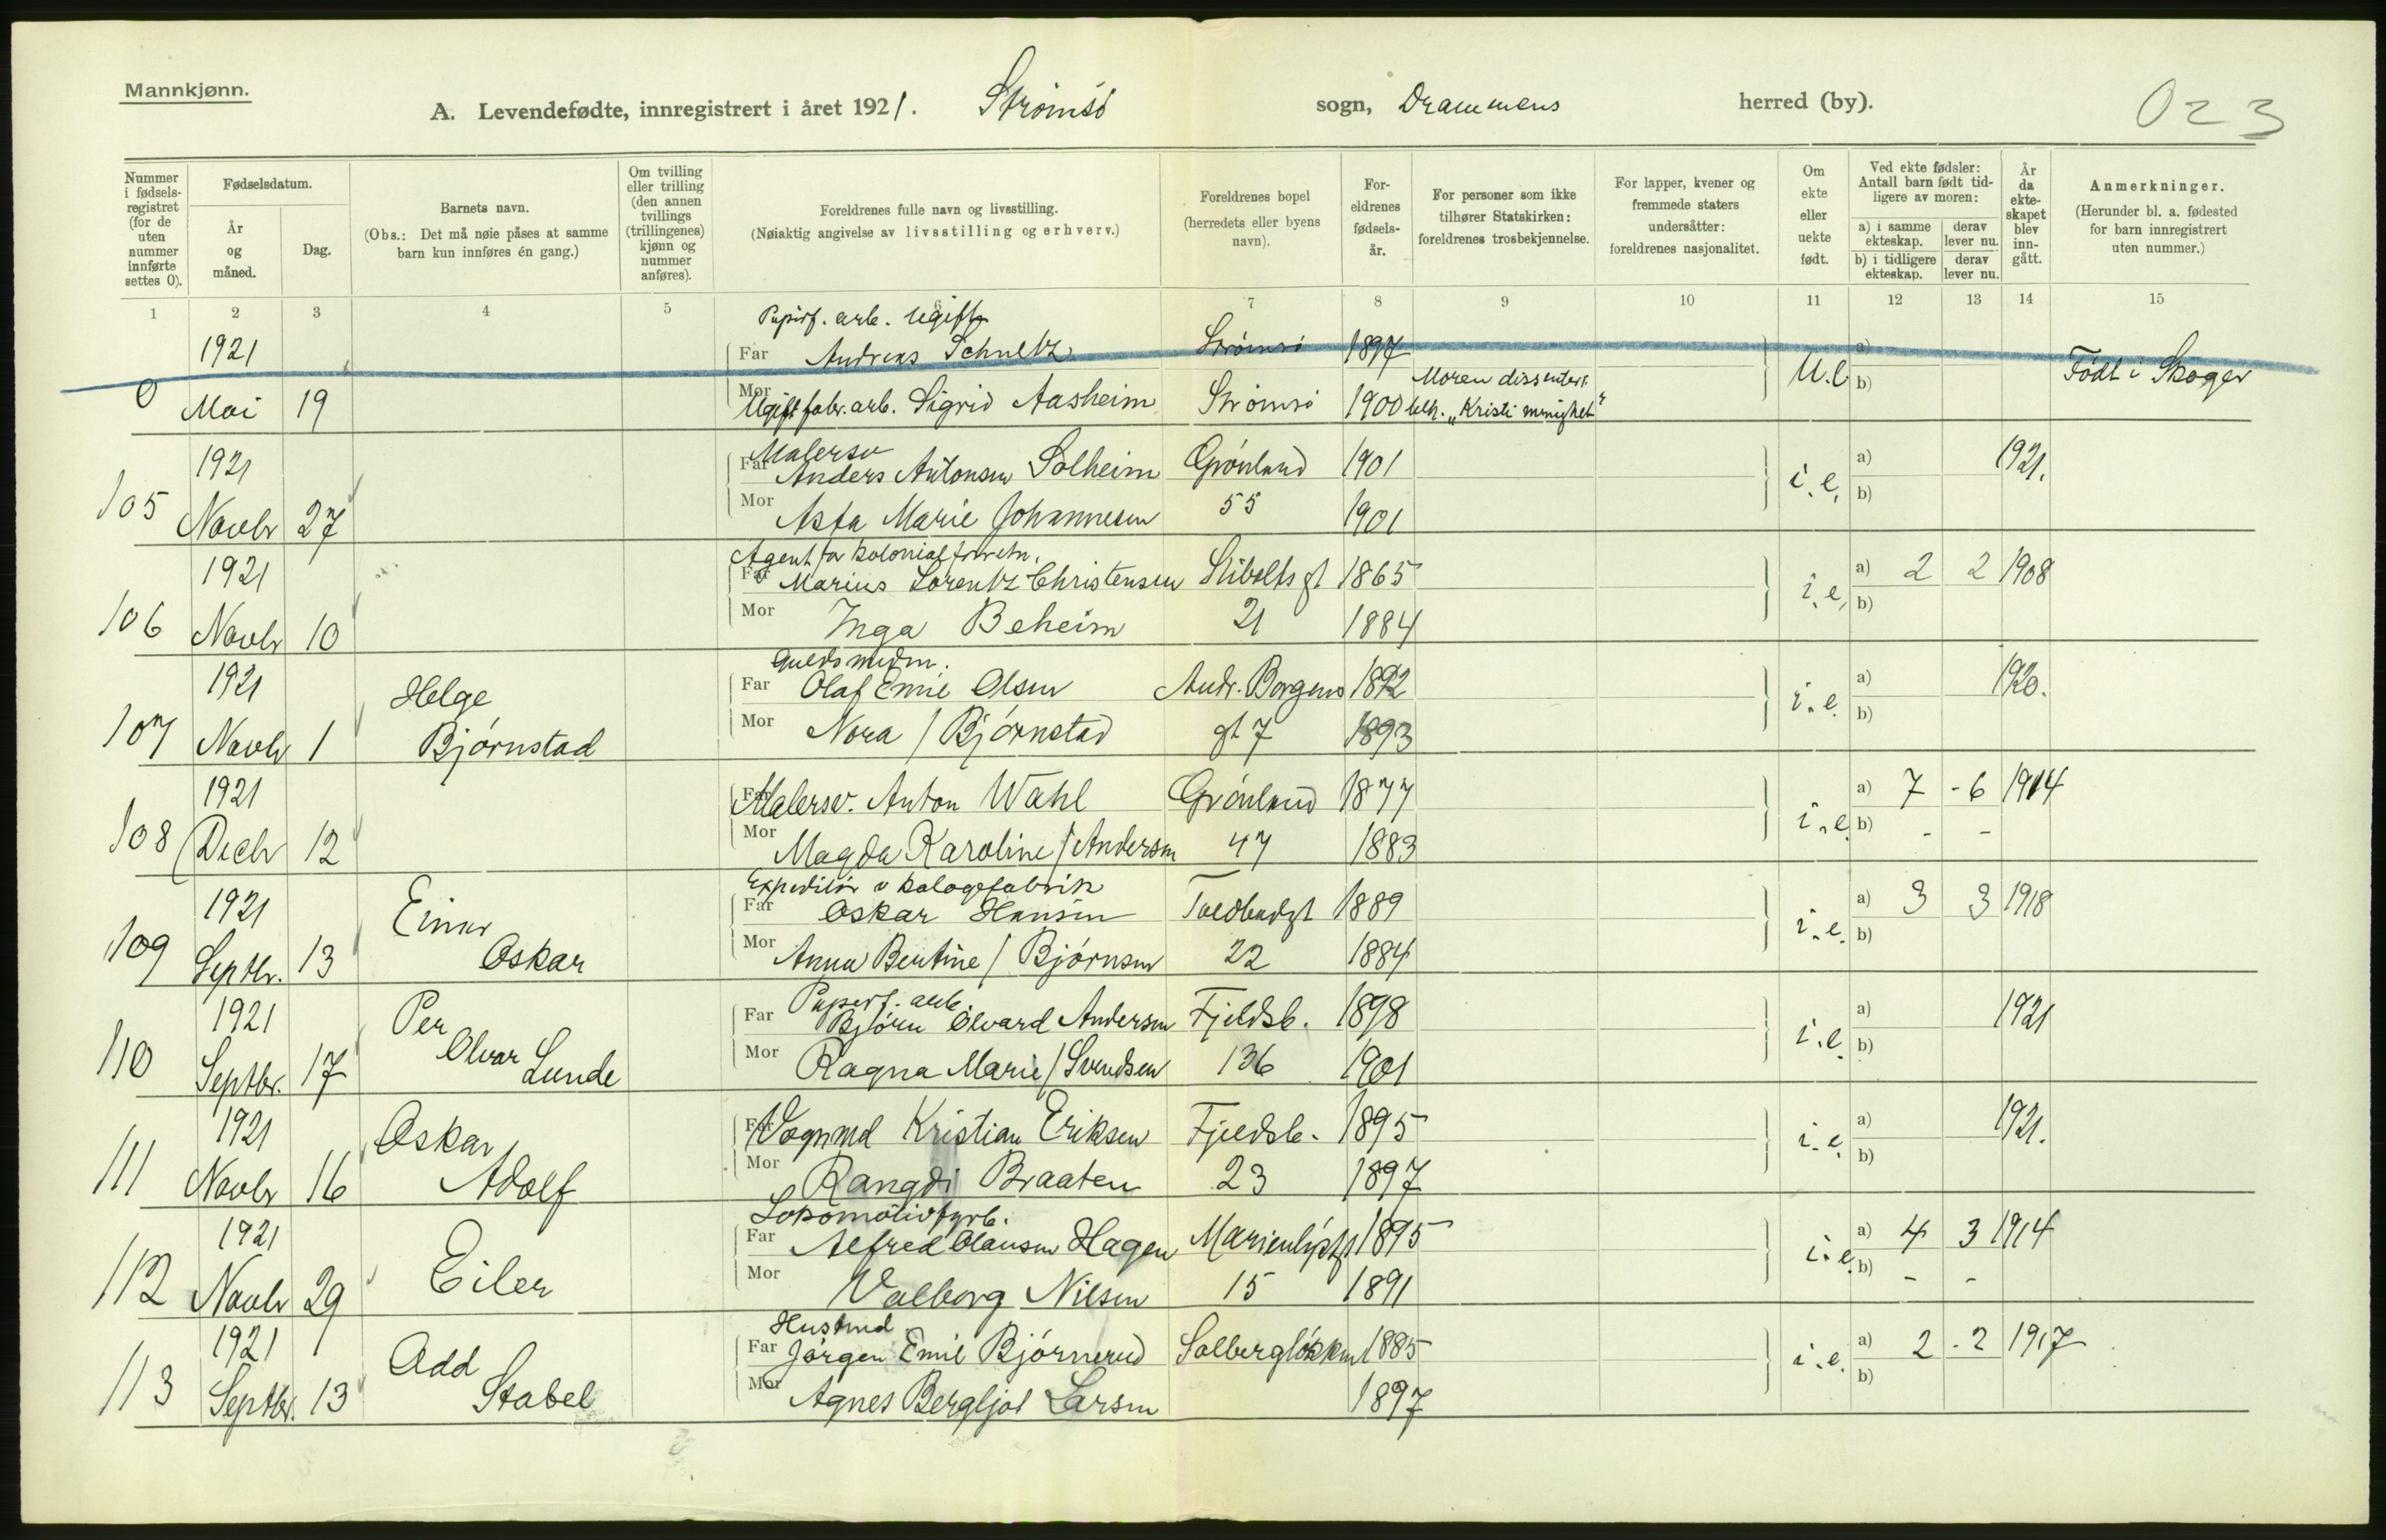 Mannkjønn.
A. Levendefødte, innregistrert i året 1921. Strømsö sogn, Drammens herred (by). 023
Nummer i fødsels-registret (for de uten nummer innførte settes 0).
Fødselsdatum.
År og måned.
Dag.
Barnets navn.
(Obs.: Det må nøie påses at samme barn kun innføres én gang.)
Om tvilling eller trilling (den annen tvillings (trillingenes) kjønn og nummer anføres).
Foreldrenes fulle navn og livsstilling.
(Nøiaktig angivelse av livsstilling og erhverv.)
Foreldrenes bopel (herredets eller byens navn).
For-eldrenes fødsels-år.
For personer som ikke tilhører Statskirken: foreldrenes trosbekjennelse.
For lapper, kvener og fremmede staters undersåtter: foreldrenes nasjonalitet.
Om ekte eller uekte født.
Ved ekte fødsler: Antall barn født tid-ligere av moren:
a) i samme ekteskap. derav lever nu.
b) i tidligere ekteskap. derav lever nu.
År da ekte-skapet blev inn-gått.
Anmerkninger.
(Herunder bl. a. fødested for barn innregistrert uten nummer.)
1 2 3 4 5 6 7 8 9 10 11 12 13 14 15
Papirf. arb. Ugift
1921 Far Andreas Schultz Strömsö 1897 a)
0 Mai 19 Mor Ugift fabr. arb. Sigrid Aasheim Strömsö 1900 Moren dissenter. „Kristi menighet" U.e. b) Født i Skoger
Malersv
1921 Far Anders Antonsen Solheim Grönland 1901 a) 1921.
105 Novbr 27 Mor Asta Marie Johannesen 55 1901 i.e. b)
Agent for kolonialforretn.
1921 Far Marius Lorentz Christensen Stibolts gt 1865 a) 2 2 1908
106 Novbr 10 Mor Inga Beheim 21 1884 i.e. b)
Guldsmedm.
1921 Helge Far Olaf Emil Olsen Andr. Borgens 1892 a) 1920.
107 Novbr 1 Björnstad Mor Nora / Björnstad gt 7 1893 i.e. b)
1921 Far Malersv. Anton Wahl Grönland 1877 a) 7 - 6 1914
108 Decbr 12 Mor Magda Karoline / Andersen 47 1883 i.e. b) - -
Expeditör v
1921 Einar Far Oskar Hansen Toldbodgt 1889 a) 3 3 1918
109 Septbr. 13 Oskar Mor Anna Bentine / Björnsen 22 1884 i.e. b)
Papirf. arb.
1921 Per Far Björn Olvard Andersen Fjeldsb. 1898 a) 1921
110 Septbr. 17 Olvar Lunde Mor Ragna Marie / Svendsen 136 1901 i.e. b)
1921 Oskar Far Vognmd Kristian Eriksen Fjeldsb. 1895 a) 1921.
111 Novbr 16 Adolf Mor Rangdi Braaten 23 1897 i.e. b)
Lokomotivfyrb.
1921 Far Alfred Olausen Hagen Marienlystgt 1895 a) 4 3 1914
112 Novbr 29 Eiler Mor Valborg Nilsen 15 1891 i.e. b) - -
1921 Odd Far Jörgen Emil Björnerud Solberglökken 1885 a) 2 - 2 1917
113 Septbr. 13 Stabel Mor Agnes Bergljot Larsen 1897 i.e. b)